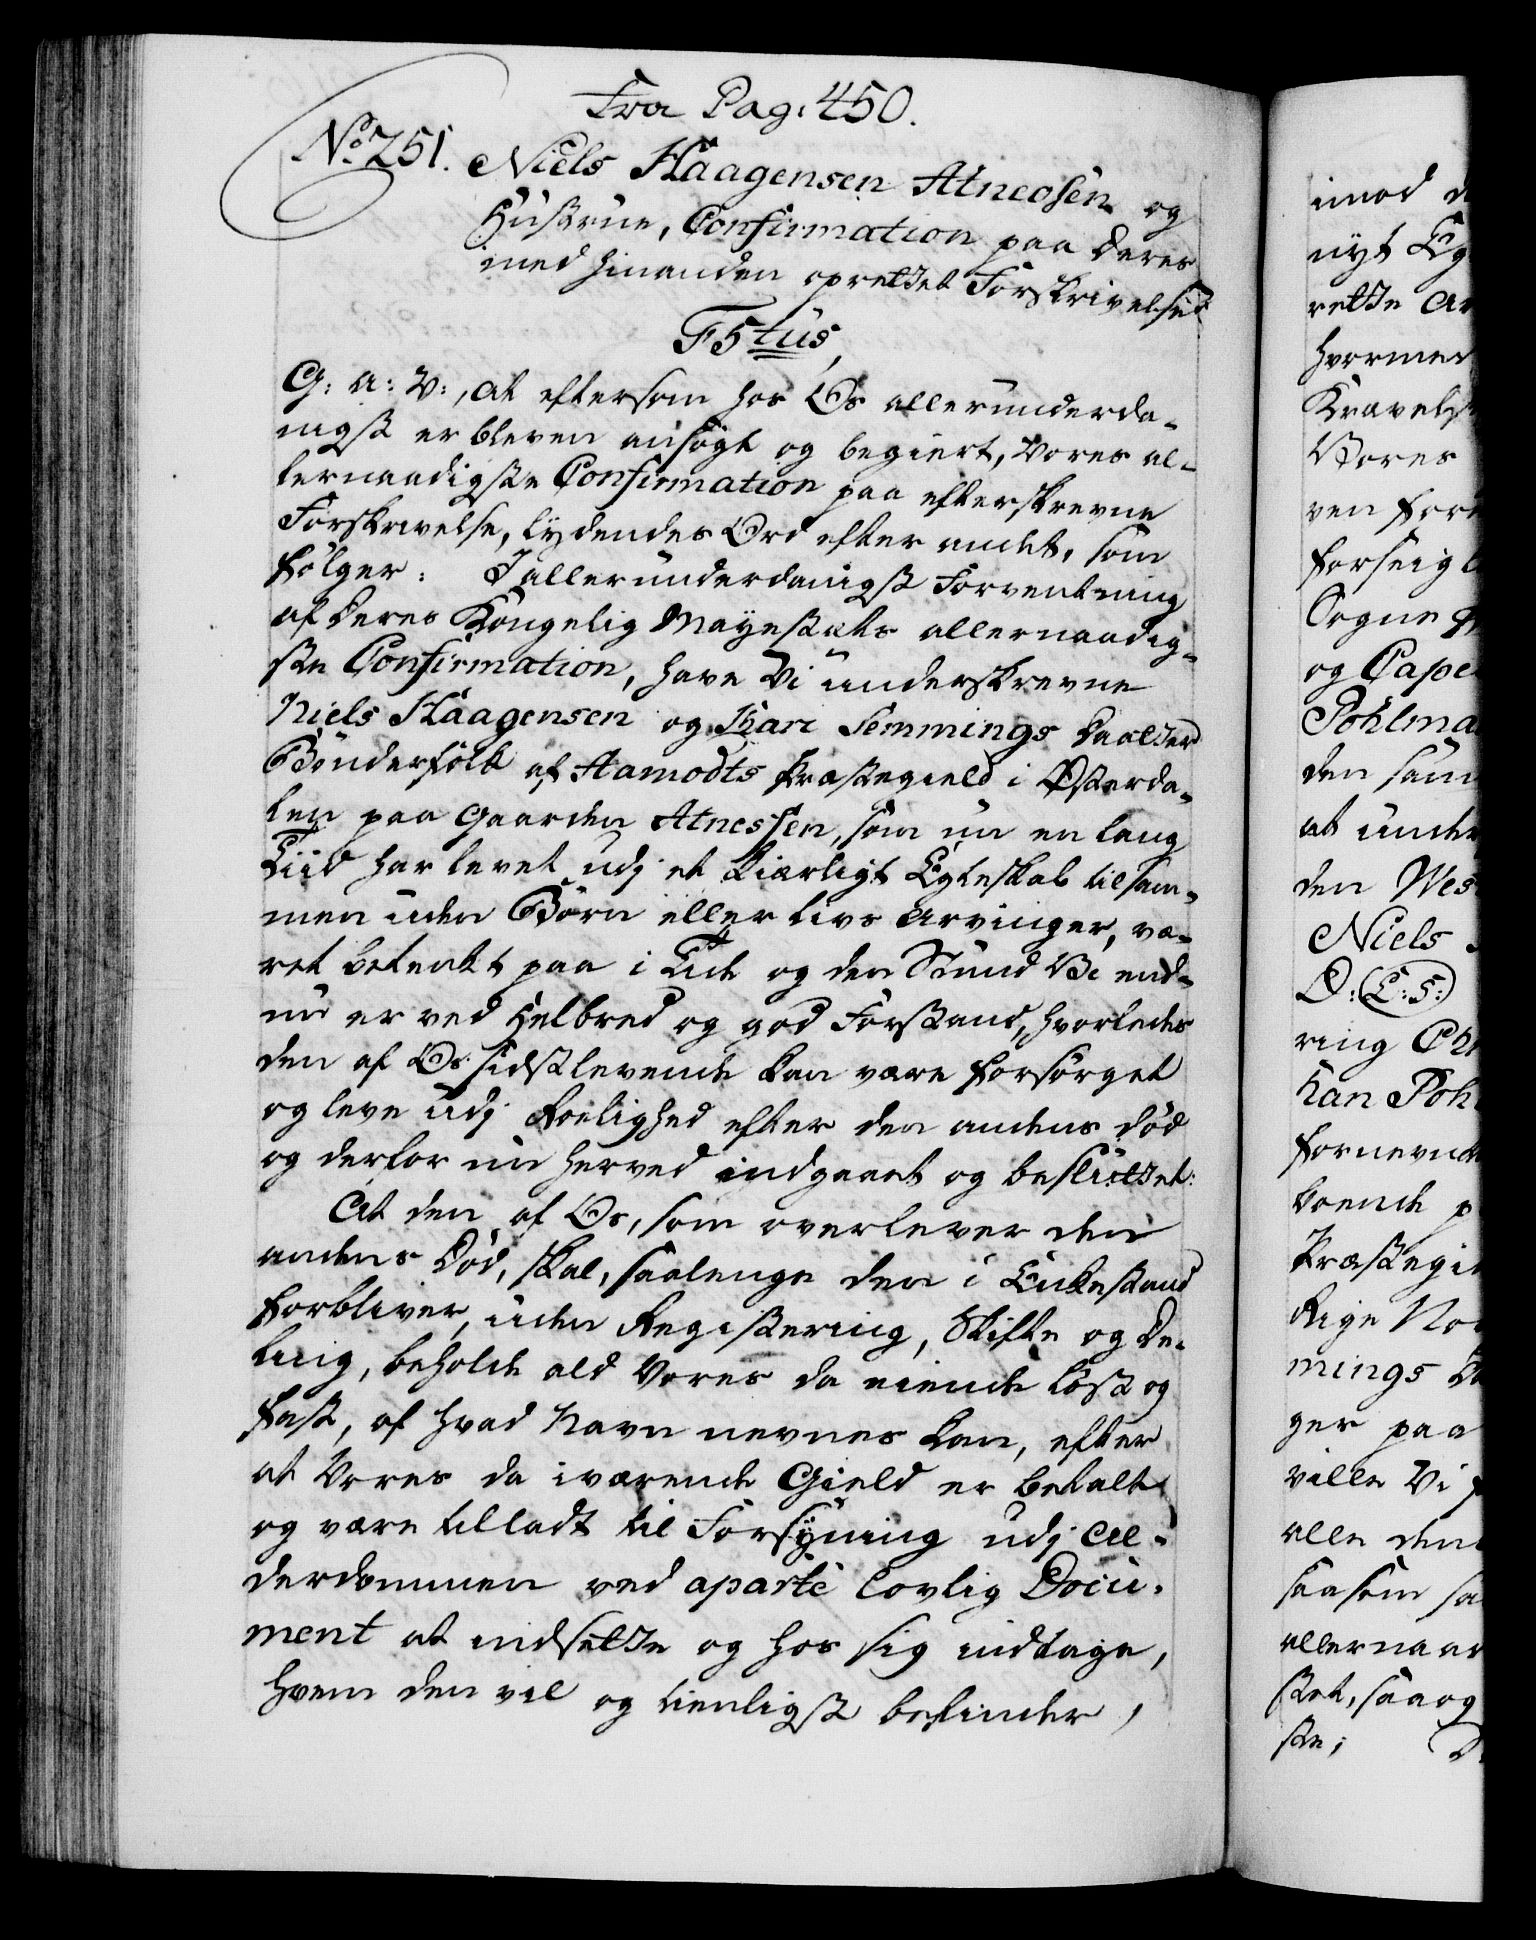 Fra Pag: 450.
No. 251. Niels Haagensen Atneosen og
Hustrue, Confirmation paa deres
med hinanden oprettet Forskrivelse.
F5tus,
G: a: V:, at eftersom hos Os allerunderda-
nigst er bleven ansøgt og begiert, Vores al-
lernaadigste Confirmation paa efterskrevne
Forskrivelse, lydendes Ord efter andet, som
følger: I allerunderdanigst Forventning
af Deres Kongelig Mayestæts allernaadig-
ste Confirmation, have Vi underskrevne
Niels Haagensen og Kari Semmings Daatter
Bønderfolk af Aamodts Præstegield i Østerda-
len paa Gaarden Atnessen, som nu en lang
Tiid har levet udj et kierligt Egteskab tilsam-
men uden Børn eller livs Arvinger, væ-
ret betenkt paa i Tide og den Stund Vi end-
nu er ved Helbred og god Forstand, hvorledes
den af Os sidstlevende kan være forsørget
og leve udj Roelighed efter den andens død
og derfor nu herved indgaaet og besluttet:
At den af Os, som overlever den
andens Død, skal, saalenge den i Enkestand
forbliver, uden Registering, Skifte og De-
ling, beholde ald Vores da eiende løst og
fast, af hvad Navn nevnes kan, efter
at Vores da iværende Gield er betalt
og være tilladt til Forsyning udj Al-
derdommen ved aparte lovlig Docu-
ment at indsette og hos sig indtage,
hvem den vil og tienligst befinder,
imod
nyt
rette
hvormed
Vores
og
den
at
den
Niels
D: (L: S:)
ring
paa
ville Vi
alle
saasom